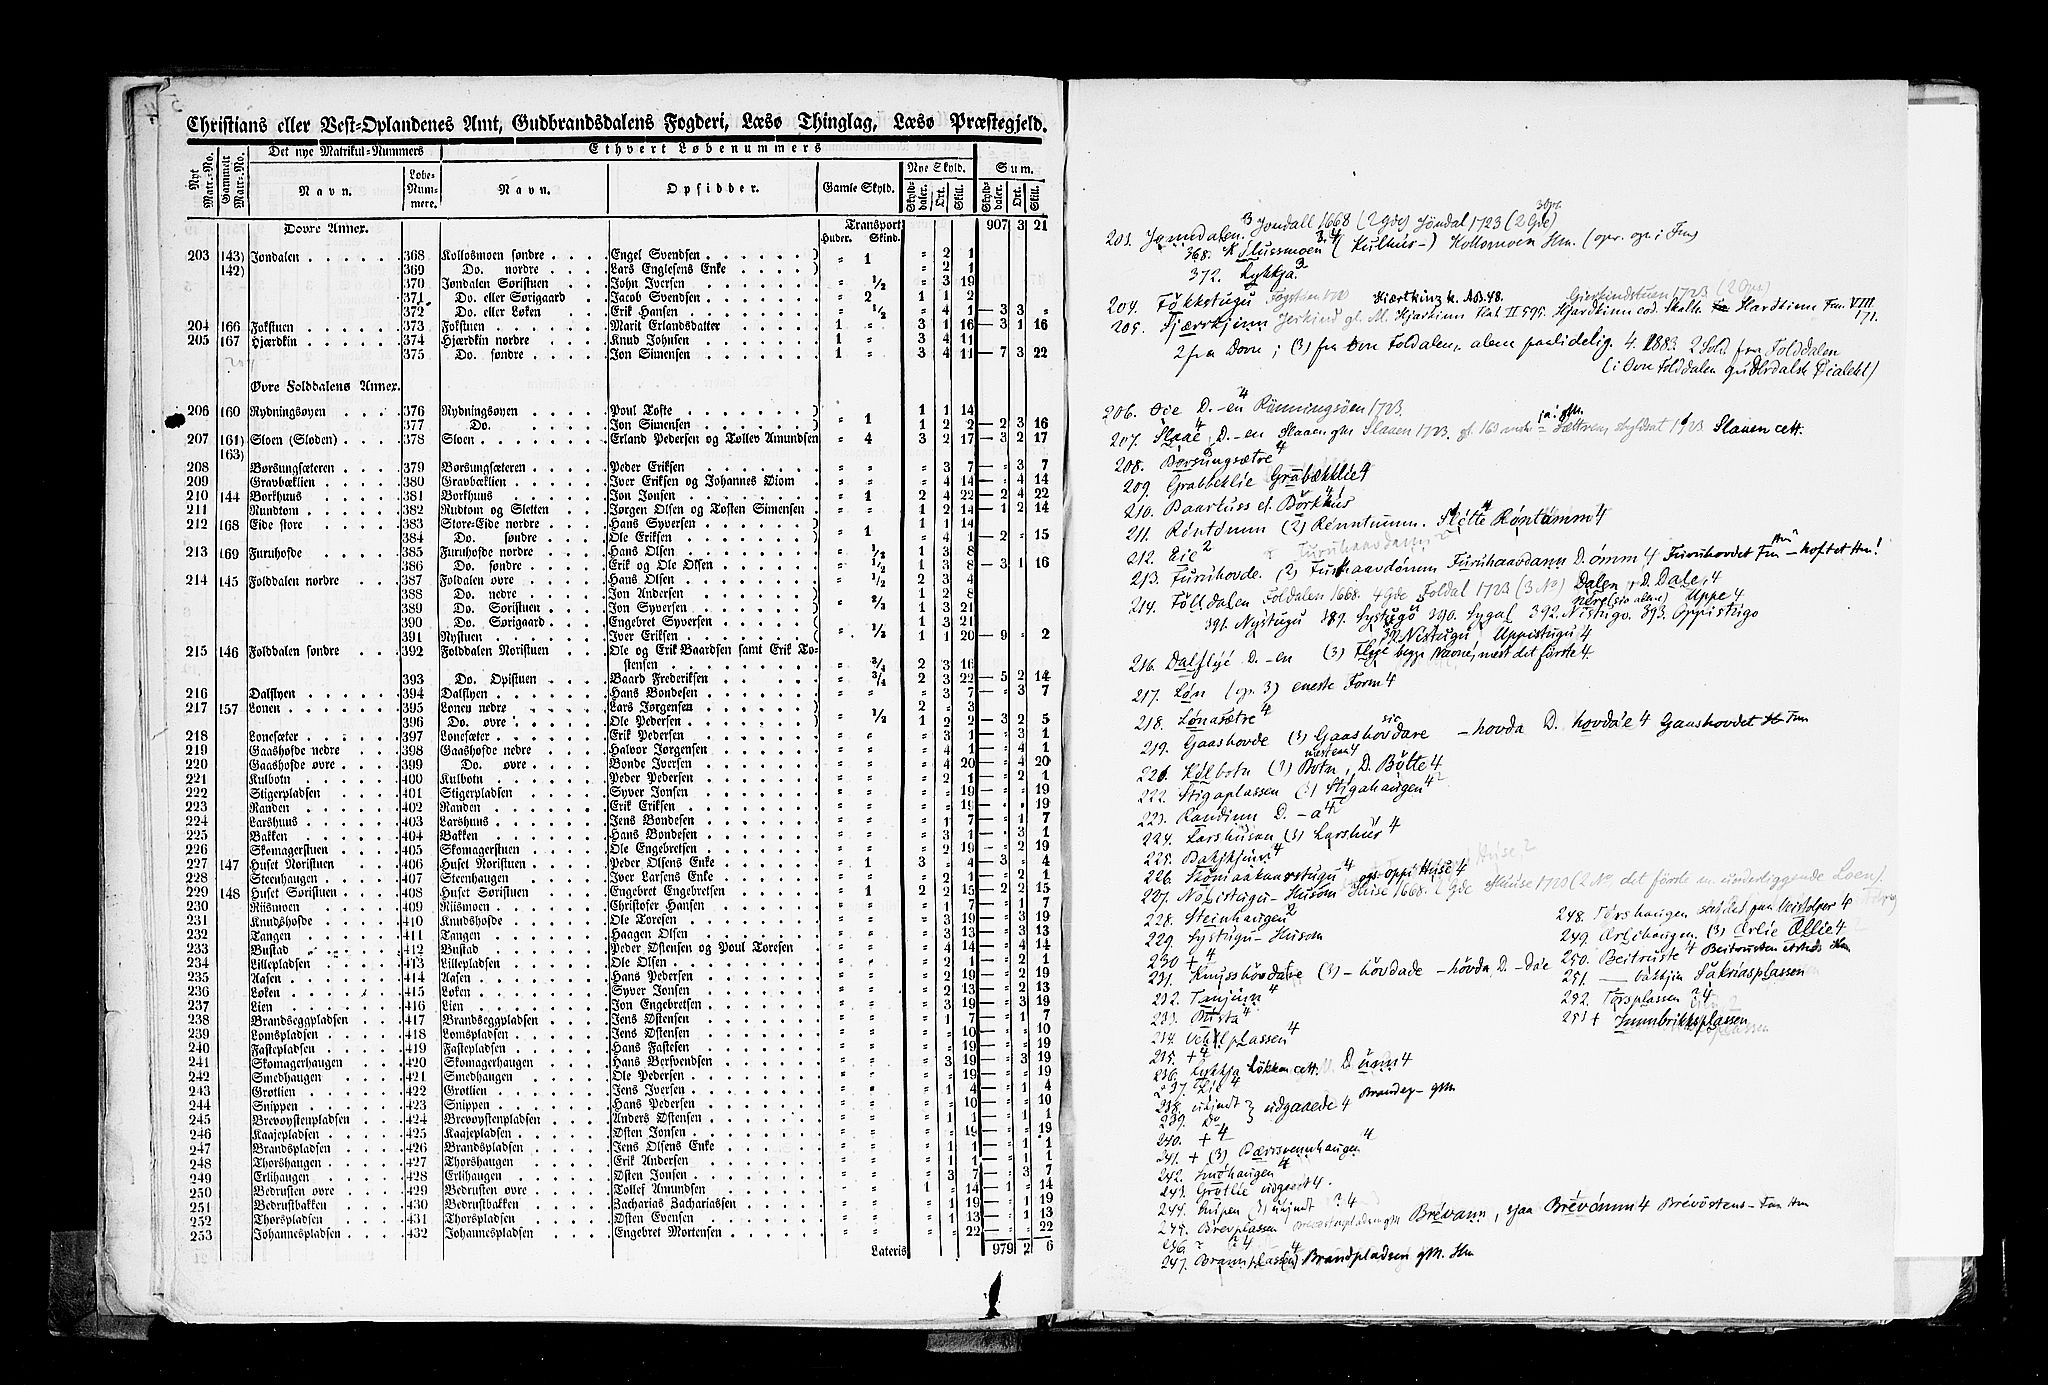 Christians eller Vest-Oplandenes Amt, Gudbrandsdalens Fogderi, Læsø Thinglag, Læsø Præstegjeld.
Nyt Matr.-No. Gammelt Matr.-No. Det nye Matrikul-Nummers Ethvert Løbenummers
Navn. Løbe-Num-mere. Navn. Opsidder. Gamle Skyld. Nye Skyld. Sum.
Skylddaler. Ort. Skill. Skylddaler. Ort. Skill.
Dovre Annex. Transport 907 3 21
Huder. Skind.
203 143) Jøndalen 368 Kollosmoen søndre Engel Svendsen ) 1 " 2 1
142) 369 Do. nordre Lars Englesens Enke ) " 2 1
370 Jøndalen Søristuen John Iversen " ½ " 3 19
371 Do. eller Sørigaard Jacob Svendsen " 2 1 1 2
372 Do. eller Løken Erik Hansen " ½ " 4 1 — 3 3 "
204 166 Fokstuen 373 Fokstuen Marit Erlandsdatter 1 " 3 1 16 — 3 1 16
205 167 Hjærdkin 374 Hjærdkin nordre Knud Johnsen 1 " 3 4 11
375 Do. søndre Jon Simensen 1 " 3 4 11 — 7 3 22
Øvre Folddalens Annex.
206 160 Rydningsøyen 376 Rydningsøyen Poul Tofte ) 1 1 14
377 Do. Jon Simensen ) " 1 1 2 2 — 2 3 16
207 161) Sloen (Sloden) 378 Sloen Erland Pedersen og Tollev Amundsen " 4 3 2 17 — 3 2 17
163)
208 Børsungsæteren 379 Børsungsæteren Peder Eriksen " " " 3 7 — " 3 7
209 Gravbæklien 380 Gravbæklien Iver Eriksen og Johannes Diom " " " 4 14 — " 4 14
210 144 Borkhuus 381 Borkhuus Jon Jonsen " 1 2 4 22 — 2 4 22
211 Rundtom 382 Rudtom og Sletten Jørgen Olsen og Tosten Simensen " " 1 2 14 — 1 2 14
212 168 Eide store 383 Store-Eide nordre Hans Syversen ) 1 1 14
384 Do. søndre Ole Eriksen ) " 1 " 4 1 — 2 " 15
213 169 Furuhofde 385 Furuhofde nordre Hans Olsen " ½ 1 3 8
386 Do. søndre Erik og Ole Olsen " ½ 1 3 8 — 3 1 16
214 145 Folddalen nordre 387 Foldalen øvre Hans Olsen " ½ 2 3 4
388 Do. nedre Jon Andersen ) 1 2 8
389 Do. Søristuen Jon Syversen ) " ⅔ 1 3 21
390 Do. Sørigaard Engebret Syversen ) 1 3 21
391 Nystuen Iver Eriksen ) " ½ 1 1 20 — 9 " 2
215 146 Folddalen søndre 392 Folddalen Noristuen Ole og Erik Baardsen samt Erik To-
stensen " ¾ 2 3 16
393 Do. Opistuen Baard Frederiksen " ¾ 2 3 22 — 5 2 14
216 Dalslyen 394 Dalslyen Hans Bondesen " " " 3 7 — " 3 7
217 157 Lonen 395 Lonen nedre Lars Jørgensen ) 2 " 3
396 Do. øvre Ole Pedersen ) " ½ 1 2 2 — 3 2 5
218 Lonesæter 397 Lonesæter Erik Pedersen " " " 3 1 — " 3 1
219 Gaashofde nedre 398 Gaashofde nedre Halvor Jørgensen " " " 4 1 — " 4 1
220 Gaashofde øvre 399 Do. øvre Bonde Iversen " " " 4 20 — " 4 20
221 Kulbotn 400 Kulbotn Peder Pedersen " " " 2 1 — " 2 1
222 Stigerpladsen 401 Stigerpladsen Syver Jonsen " " " " 19 — " " 19
223 Randen 402 Randen Erik Eriksen " " " " 19 — " " 19
224 Larshuus 403 Larshuus Jens Bondesen " " " 1 7 — " 1 7
225 Bakken 404 Bakken Hans Bondesen " " " 3 1 — " 3 1
226 Skomagerstuen 405 Skomagerstuen Ole Engebretsen " " " 2 19 — " 2 19
227 147 Huset Noristuen 406 Huset Noristuen Peder Olsens Enke " 1 3 " 4 — 3 " 4
228 Steenhaugen 407 Steenhaugen Iver Larsens Enke " " " 2 1 — " 2 1
229 148 Huset Søristuen 408 Huset Søristuen Engebret Engebretsen " 1 2 2 15 — 2 2 15
230 Riismoen 409 Riismoen Christofer Hansen " " " 1 7 — " 1 7
231 Knudshofde 410 Knudshofde Ole Toresen " " " 3 19 — " 3 19
232 Tangen 411 Tangen Haagen Olsen " " " 3 13 — " 3 13
233 Bustad 412 Bustad Peder Østensen og Poul Toresen " " " 4 14 — " 4 14
234 Lillepladsen 413 Lillepladsen Ole Olsen " " " 2 1 — " 2 1
235 Aasen 414 Aasen Hans Pedersen " " " 2 19 — " 2 19
236 Løken 415 Løken Syver Jonsen " " " 2 13 — " 2 13
237 Lien 416 Lien Jon Engebretsen " " " 3 19 — " 3 19
238 Brandseggpladsen 417 Brandseggpladsen Jens Østensen " " " 1 7 — " 1 7
239 Lomspladsen 418 Lomspladsen Jens Østensen " " " " 10 — " " 10
240 Fastepladsen 419 Fastepladsen Hans Fastesen " " " " 19 — " " 19
241 Skomagerhaugen 420 Skomagerhaugen Hans Bersvendsen " " " 3 19 — " 3 19
242 Smedhaugen 421 Smedhaugen Ole Pedersen " " " " 19 — " " 19
243 Grøtlien 422 Grøtlien Jens Iversen " " " 1 4 — " 1 4
244 Snippen 423 Snippen Hans Pedersen " " " " 10 — " " 10
245 Brevøystenpladsen 424 Brevøystenpladsen Anders Østensen " " " 1 1 — " 1 1
246 Kaajepladsen 425 Kaajepladsen Østen Jonsen " " " " 19 — " " 19
247 Brandspladsen 426 Brandspladsen Jens Olsens Enke " " " 1 1 — " 1 1
248 Thorshaugen 427 Thorshaugen Erik Andersen " " " 1 1 — " 1 1
249 Erlihaugen 428 Erlihaugen Østen Jonsen " " " 3 7 — " 3 7
250 Bedrusten øvre 429 Bedrusten øvre Tollef Amundsen " " 1 " 14 — 1 " 14
251 Bedrustbakken 430 Bedrustbakken Zacharias Zachariassen " " " 1 19 — " 1 19
252 Thorspladsen 431 Thorspladsen Østen Evensen " " " 1 13 — " 1 13
253 Johannespladsen 432 Johannespladsen Engebret Mortensen " " " " 22 — " " 22
Lateris 979 2 6
203. Jønndalen. Jondall 1668 (2 Gde) Jöndal 1723 (2 Gde)
368. (Kulhus-) Kollomoen Hm. (opr. op. i Fm)
372. Lykkja 3
204. Fokkstugu
205. Hjerkinn Jerkind gl. M. Hjarkinn Kal. II 595. Hjardkinn cod. Skalh. Hardkinn Fm. VIII 171.
2 fra Dovre; (3) fra Øvre Foldalen, alene paalidelig. 4. 1883. 2 Sold. fra Folddalen
(i Øvre Folddalen gudbrdalsk Dialekt)
206. Øie D. -en 4 Rönningsöen 1723.
207. Slaae 4, D. -en Slaaen gm Slauen 1723. Slauen cett.
208. Börsungsætre 4
209. Grabbeklie Grabækklie 4
210. Baartuss el. Börkhus 4
211. Rontomm (2) Rönntumm. Slette Röntömm 4
212. Eie 2
213. Furuhovde. (2) Furuhaavdomm Furuhaavdann D. ömm 4 Furuhovdet Fm - hoftet Hm!
214. Folldalen Foldalen 1668. 4 Gde Foldal 1723 (3 No) Dalen, D. Dale, 4
391. Nystugu 389. Systugu 390. Sygal 392. Nistugo. 393. Oppistugo
Nistugu Uppistugu 4
216. Dalslyé D. -en (3) Flyé begge Navne, mest det første 4.
217. Løn (opr. 3) eneste Form 4
218. Lønasætre 4
219. Gaashovde (3) Gaashovdare - hovda D. hovdae 4 Gaashovdet Fm
221. Kolbotn (3) Botn, D. Bötte 4
222. Stigaplassen (3) Stigahaugen 4
223. Randinn D. -a 4
224. Larshuson (3) Larshus 4
225. Bakkjinn 4
226. Skomaakarstugu 4
227. Noristugu - Husom Huse 1668. 1 Gde Huuse 1720 (2 No, det første m. underliggende Loen).
228. Steinhaugen 2
229. Systugu - Husom
230 + 4
231. Knusshovdare (3) - hovdade - hovda, D. - dae
232. Tanjinn 4
233. Busta 4
234. Vehlplassen 4
235. + 4
236. Lykkja Løkken cett. D. unn 4
237. Lie 4
238. ukjendt
239. Do } udgaaede 4 Brandeg- gm
240. + 4
241. + (3) Bærsvennhaugen 4
242. Smehaugen 4
243. Grotlie udgaaet 4.
244. Snipen (3) ukjendt ? 4
245. Brevplassen Brevann, sjaa Brevomm 4 Brevöstens- Fm Hm
246. ? ? 4
247. Brannplassen 4 Brandpladsen gM. Hm
248. Torshaugen
249. Ærlihaugen. (3) Ærlie Ællie 4
250. Beitruste 4 Beitrusten
251. — bakkjin Sakriasplassen
252. Torsplassen ? 4
253 + Innbrikksplassen